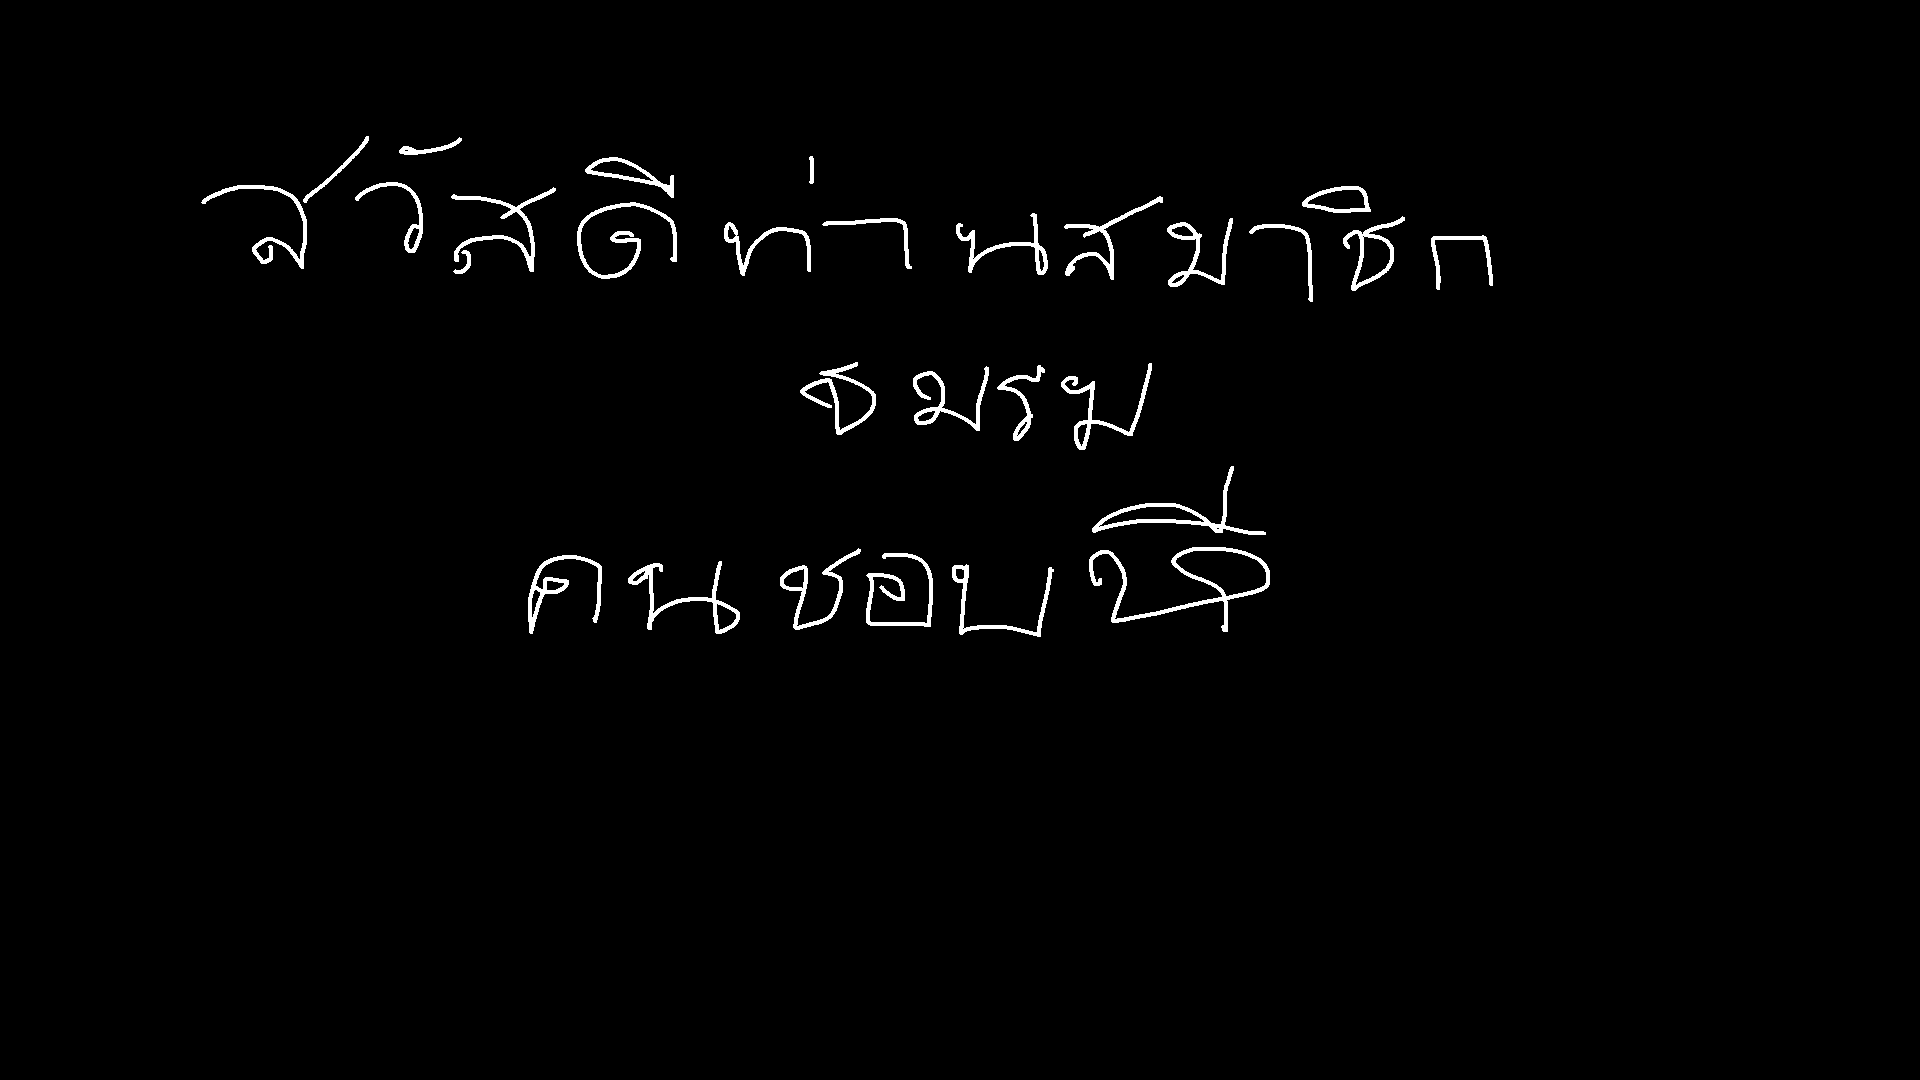 สวัสดีท่านสมาชิก
ชมรม
คนชอบขี่